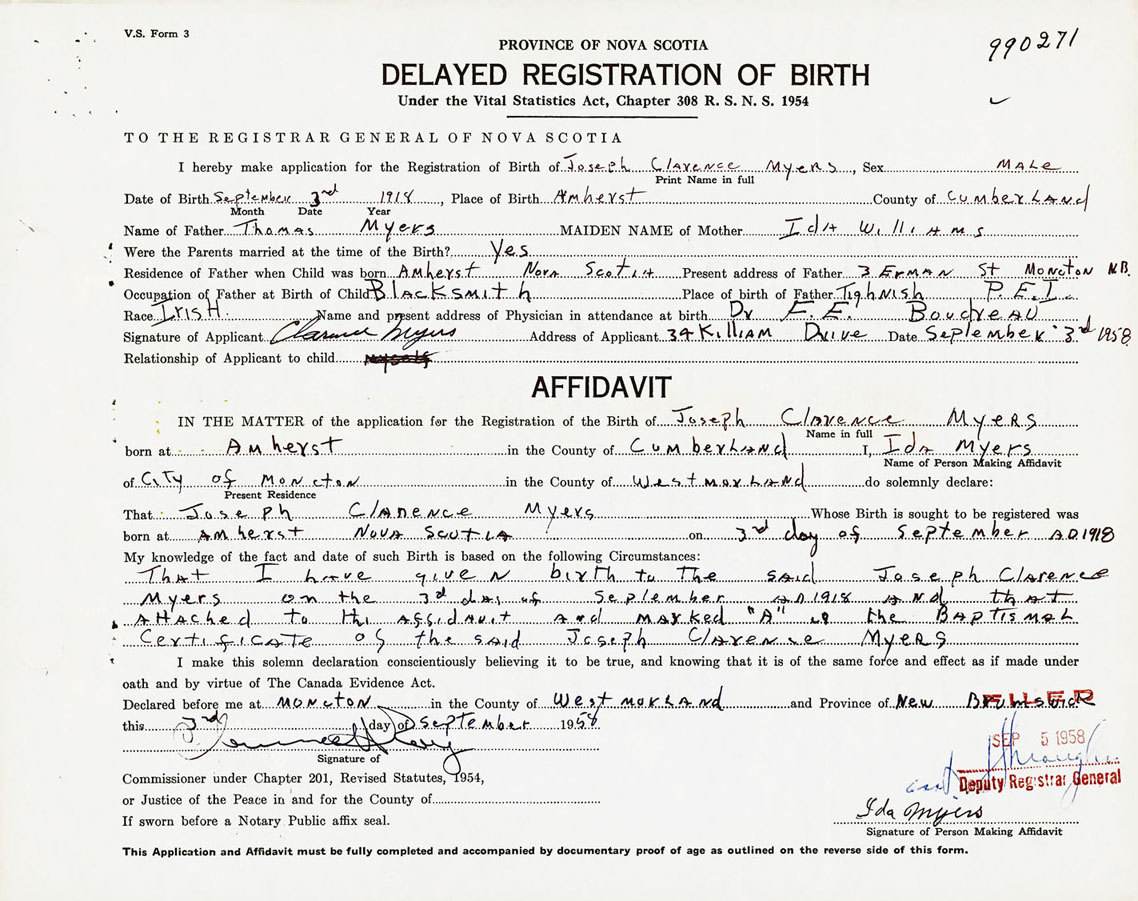 V.S. Form 3
990271
PROVINCE OF NOVA SCOTIA
DELAYED REGISTRATION OF BIRTH
Under the Vital Statistics Act, Chapter 308 R. S. N. S. 1954
TO THE REGISTRAR GENERAL OF NOVA SCOTIA
I hereby make application for the Registration of Birth of Joseph Clarence Myers, Sex Male
Print Name in full
Date of Birth September 3rd 1918, Place of Birth Amherst County of Cumberland
Month Date Year
Name of Father Thomas Myers MAIDEN NAME of Mother Ida Williams
Were the Parents married at the time of the Birth? Yes
Residence of Father when Child was born Amherst Nova Scotia Present address of Father 3 Erman St Moncton N.B.
Occupation of Father at Birth of Child Blacksmith Place of birth of Father Tighnish P.E.I.
Race Irish. Name and present address of Physician in attendance at birth Dr F. E. Boudreau
Signature of Applicant Clarence Myers Address of Applicant 34 Killiam Drive Date September 3rd 1958
Relationship of Applicant to child
AFFIDAVIT
IN THE MATTER of the application for the Registration of the Birth of Joseph Clarence Myers
Name in full
born at Amherst in the County of Cumberland I, Ida Myers
Name of Person Making Affidavit
of City of Moncton in the County of Westmorland do solemnly declare:
Present Residence
That Joseph Clarence Myers Whose Birth is sought to be registered was
born at Amherst Nova Scotia on 3rd day of September A.D. 1918
My knowledge of the fact and date of such Birth is based on the following Circumstances:
That I have given birth to the said Joseph Clarence
Myers on the 3rd day of September A.D. 1918 and that
Attached to this affidavit and marked "A" is the Baptismal
Certificate of the said Joseph Clarence Myers
I make this solemn declaration conscientiously believing it to be true, and knowing that it is of the same force and effect as if made under
oath and by virtue of The Canada Evidence Act.
Declared before me at Moncton in the County of Westmorland and Province of New Brunswick
FILED
this 3rd day of September 1958
SEP 5 1958
Signature of
Commissioner under Chapter 201, Revised Statutes, 1954,
Deputy Registrar General
or Justice of the Peace in and for the County of
Ida Myers
If sworn before a Notary Public affix seal.
Signature of Person Making Affidavit
This Application and Affidavit must be fully completed and accompanied by documentary proof of age as outlined on the reverse side of this form.